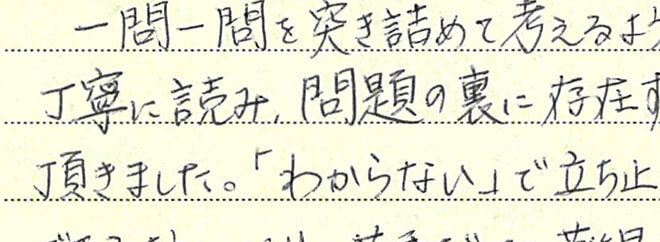 一問一問を突き詰めて考えるよう
丁寧に読み、問題の裏に存在す
頂きました。「わからない」で立ち止